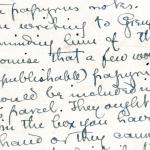 t papyrus notes.
writing to Gren
minding him of th
omise that a few wo
publishable papyru
ould be included
e parcel. They ought
om the box you have
hand or they can